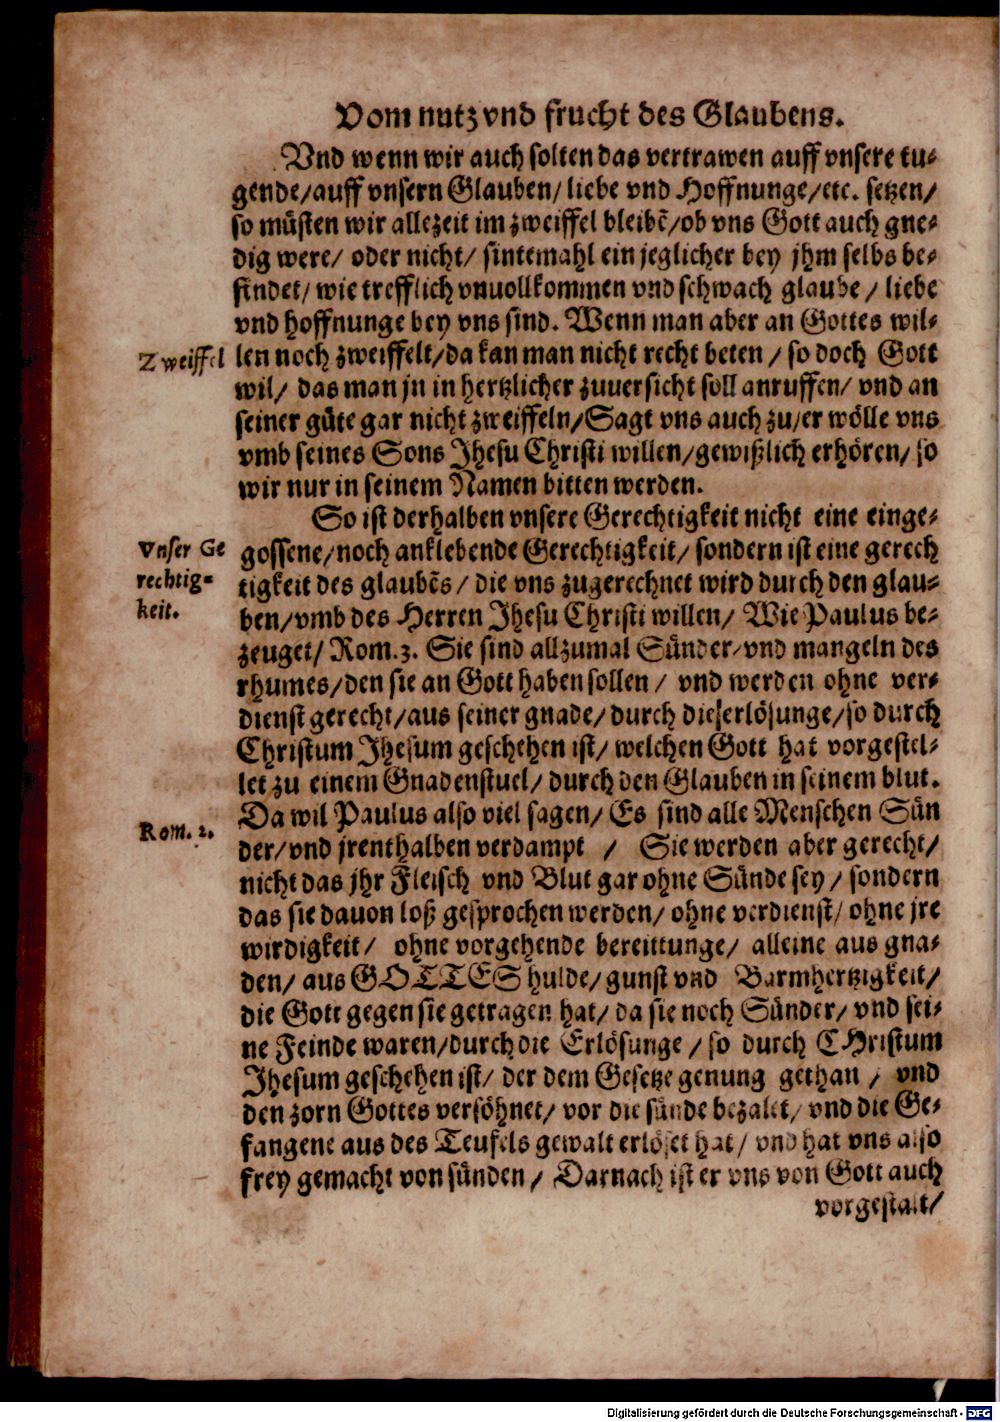 Vom nutz vnd frucht des Glaubens.
Vnd wenn wir auch solten das vertrawen auff vnsere tu-
gende/auff vnsern Glauben/ liebe vnd Hoffnunge/etc. setzen/
so müsten wir allezeit im zweiffel bleibẽ/ob vns Gott auch gne-
dig were/ oder nicht/ sintemahl ein jeglicher bey jhm selbs be-
findet/ wie trefflich vnuollkommen vnd schwach glaube / liebe
vnd hoffnunge bey vns sind. Wenn man aber an Gottes wil-
Zweiffel
len noch zweiffelt/da kan man nicht recht beten / so doch Gott
wil/ das man jn in hertzlicher zuuersicht soll anruffen/ vnd an
seiner güte gar nicht zweiffeln/Sagt vns auch zu/er wölle vns
vmb seines Sons Jhesu Christi willen/gewißlich erhören/ so
wir nur in seinem Namen bitten werden.
So ist derhalben vnsere Gerechtigkeit nicht eine einge-
Vnser Ge
rechtig-
keit.
gossene/noch anklebende Gerechtigkeit/ sondern ist eine gerech
tigkeit des glaubẽs / die vns zugerechnet wird durch den glau-
ben/vmb des Herren Jhesu Christi willen/ Wie Paulus be-
zeuget/ Rom.3. Sie sind allzumal Sünder/vnd mangeln des
rhumes/den sie an Gott haben sollen / vnd werden ohne ver-
dienst gerecht/aus seiner gnade/durch die erlösunge/so durch
Christum Jhesum geschehen ist/ welchen Gott hat vorgestel-
let zu einem Gnadenstuel/ durch den Glauben in seinem blut.
Rom. 2.
Da wil Paulus also viel sagen/ Es sind alle Menschen Sün
der/vnd jrenthalben verdampt / Sie werden aber gerecht/
nicht das jhr Fleisch vnd Blut gar ohne Sünde sey / sondern
das sie dauon loß gesprochen werden/ ohne verdienst/ ohne jre
wirdigkeit/ ohne vorgehende bereittunge/ alleine aus gna-
den/ aus GOTTES hulde/ gunst vnd Barmhertzigkeit/
die Gott gegen sie getragen hat/ da sie noch Sünder/ vnd sei-
ne Feinde waren/durch die Erlösunge / so durch CHristum
Jhesum geschehen ist/ der dem Gesetze genung gethan / vnd
den zorn Gottes versöhnet/ vor die sünde bezalet/ vnd die Ge-
fangene aus des Teufels gewalt erlöset hat/ vnd hat vns also
frey gemacht von sünden / Darnach ist er vns von Gott auch
vorgestalt/
Digitalisierung gefördert durch die Deutsche Forschungsgemeinschaft - DFG